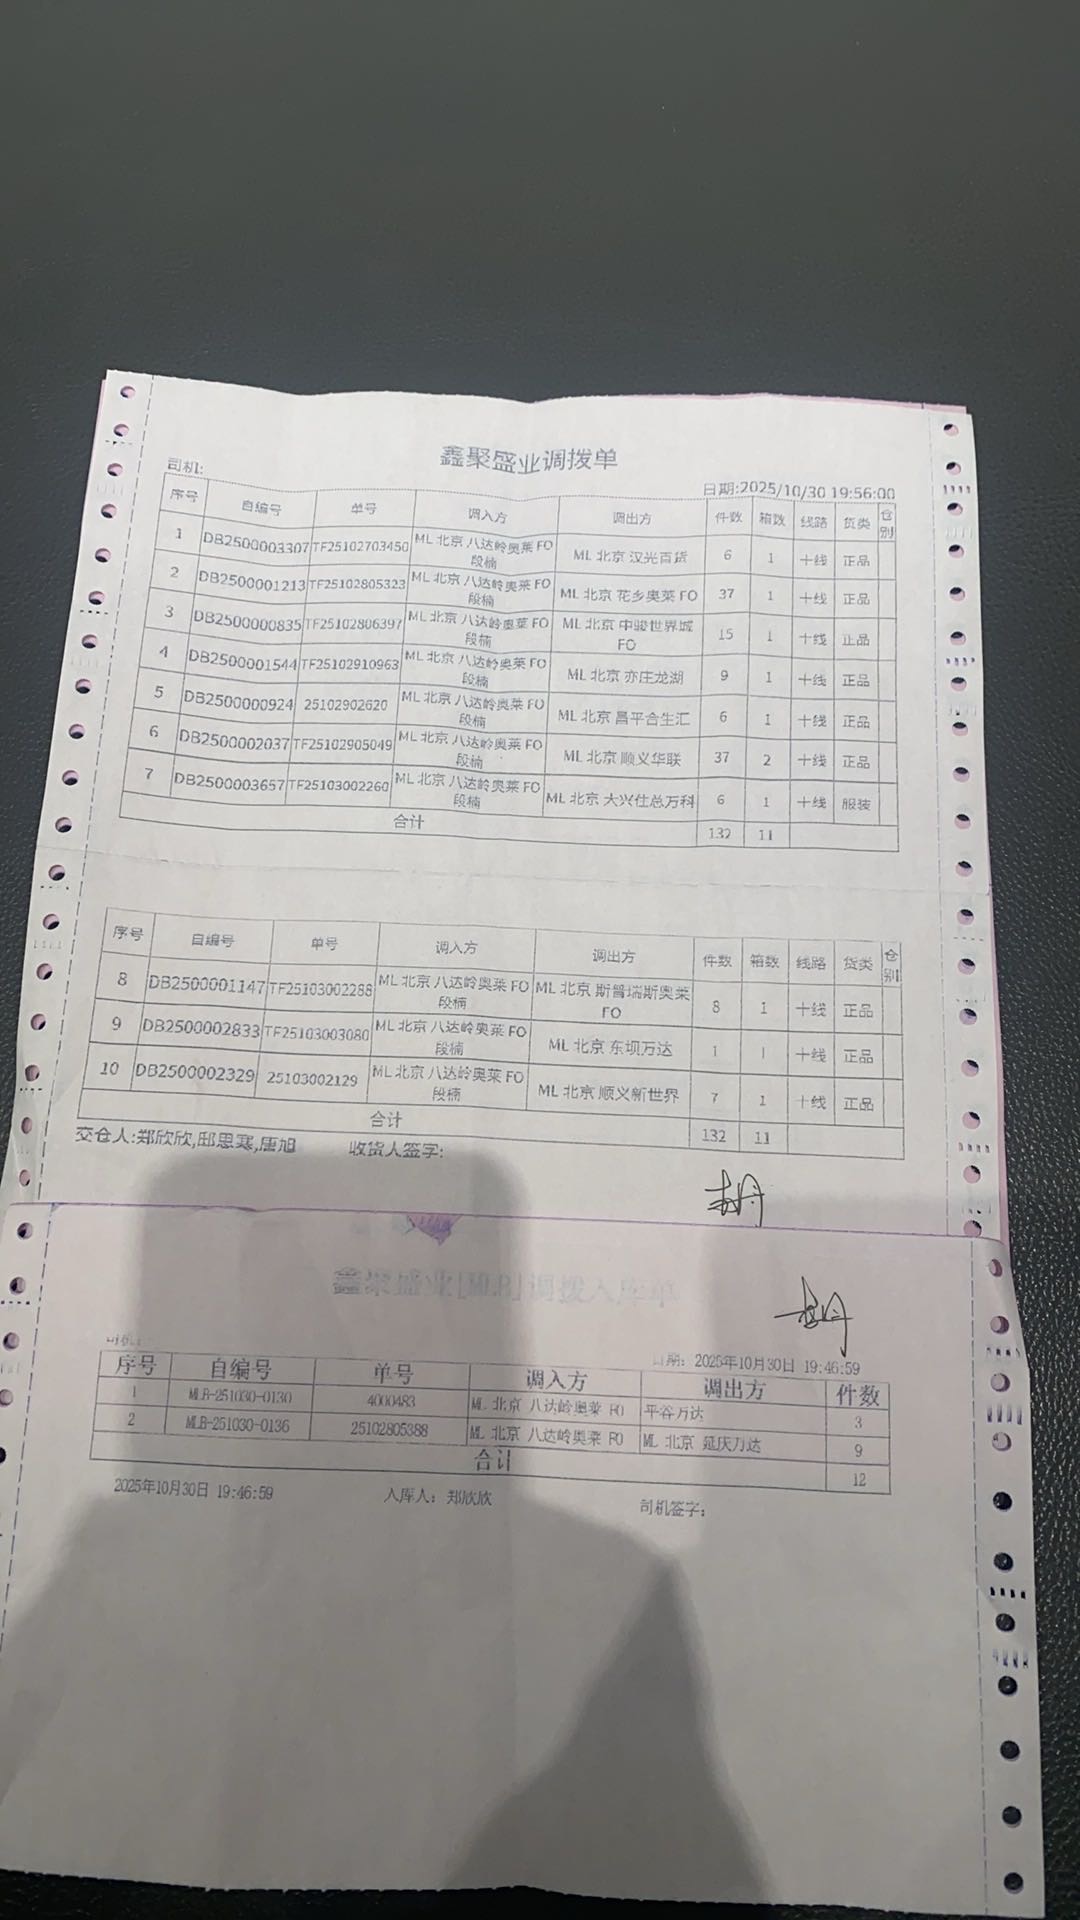 鑫聚盛业调拨单
司机:
日期:2025/10/30 19:56:00
序号 自编号 单号 调入方 调出方 件数 箱数 线路 货类 仓别
1 DB2500003307 TF25102703450 ML 北京 八达岭奥莱 FO 段楠 ML 北京 汉光百货 6 1 十线 正品
2 DB2500001213 TF25102805323 ML 北京 八达岭奥莱 FO 段楠 ML 北京 花乡奥莱 FO 37 1 十线 正品
3 DB2500000835 TF25102806397 ML 北京 八达岭奥莱 FO 段楠 ML 北京 中骏世界城 FO 15 1 十线 正品
4 DB2500001544 TF25102910963 ML 北京 八达岭奥莱 FO 段楠 ML 北京 亦庄龙湖 9 1 十线 正品
5 DB2500000924 25102902620 ML 北京 八达岭奥莱 FO 段楠 ML 北京 昌平合生汇 6 1 十线 正品
6 DB2500002037 TF25102905049 ML 北京 八达岭奥莱 FO 段楠 ML 北京 顺义华联 37 2 十线 正品
7 DB2500003657 TF25103002260 ML 北京 八达岭奥莱 FO 段楠 ML 北京 大兴住总万科 6 1 十线 服装
合计 132 11
序号 自编号 单号 调入方 调出方 件数 箱数 线路 货类 仓别
8 DB2500001147 TF25103002288 ML 北京 八达岭奥莱 FO 段楠 ML 北京 斯普瑞斯奥莱 FO 8 1 十线 正品
9 DB2500002833 TF25103003080 ML 北京 八达岭奥莱 FO 段楠 ML 北京 东坝万达 1 1 十线 正品
10 DB2500002329 25103002129 ML 北京 八达岭奥莱 FO 段楠 ML 北京 顺义新世界 7 1 十线 正品
合计 132 11
交仓人:郑欣欣,邸思寒,唐旭 收货人签字:
鑫聚盛业[MLB]调拨入库单
司机:
日期: 2025年10月30日 19:46:59
序号 自编号 单号 调入方 调出方 件数
1 MLB-251030-0130 4000483 ML 北京 八达岭奥莱 FO 平谷万达 3
2 MLB-251030-0136 25102805388 ML 北京 八达岭奥莱 FO ML 北京 延庆万达 9
合计 12
2025年10月30日 19:46:59 入库人: 郑欣欣 司机签字: